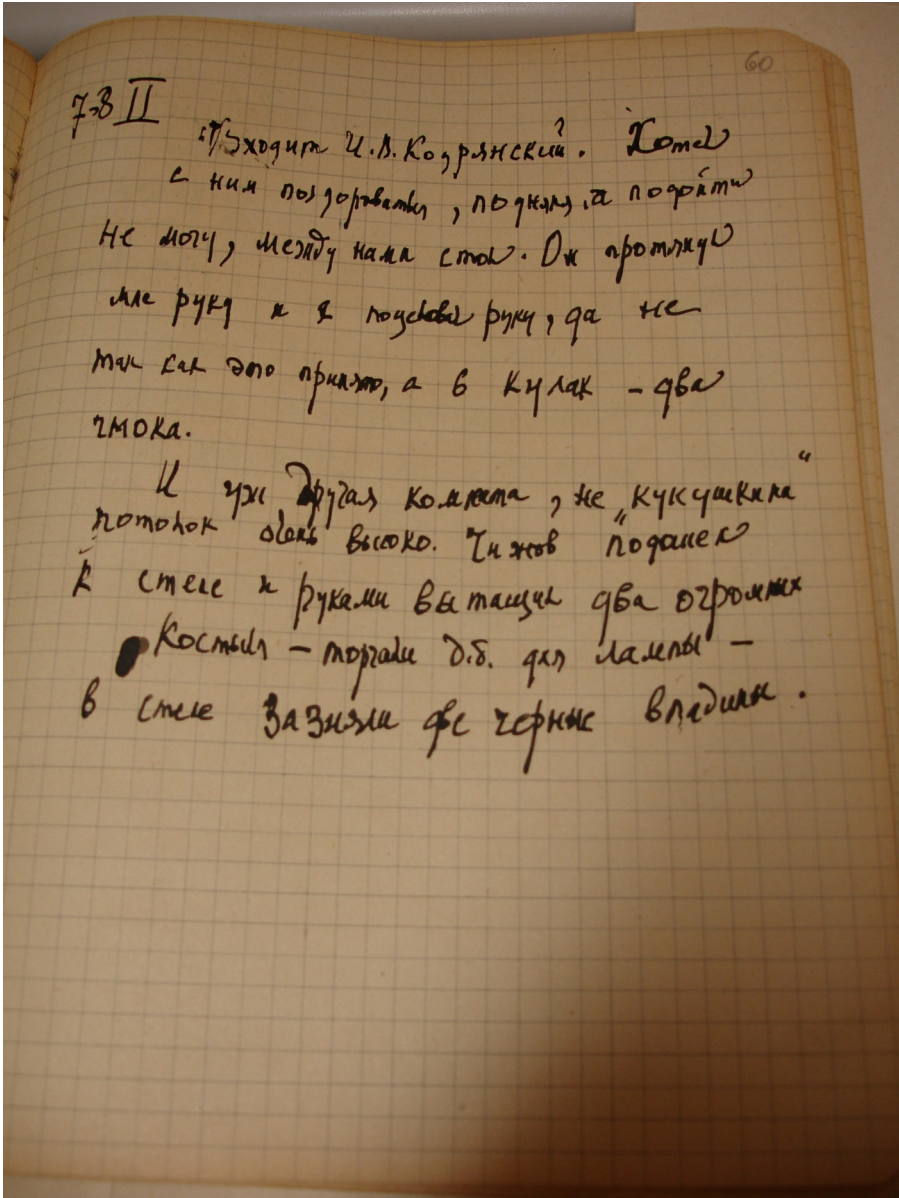 60
7-8 II
Входит И.В.Кодрянский. Хотел
с ним поздороваться, поднялся, а подойти
не могу, между нами стол. Он протянул
мне руку и я поцеловал руку, да не
так как это принято, а в кулак – два
чмока.
И уж другая комната, не „кукушкина“
потолок очень высоко. Чижов подошел
к стене и руками вытащил два огромных
Костыля – торчали д.б. для лампы –
в стене зазияли две черные впадины.